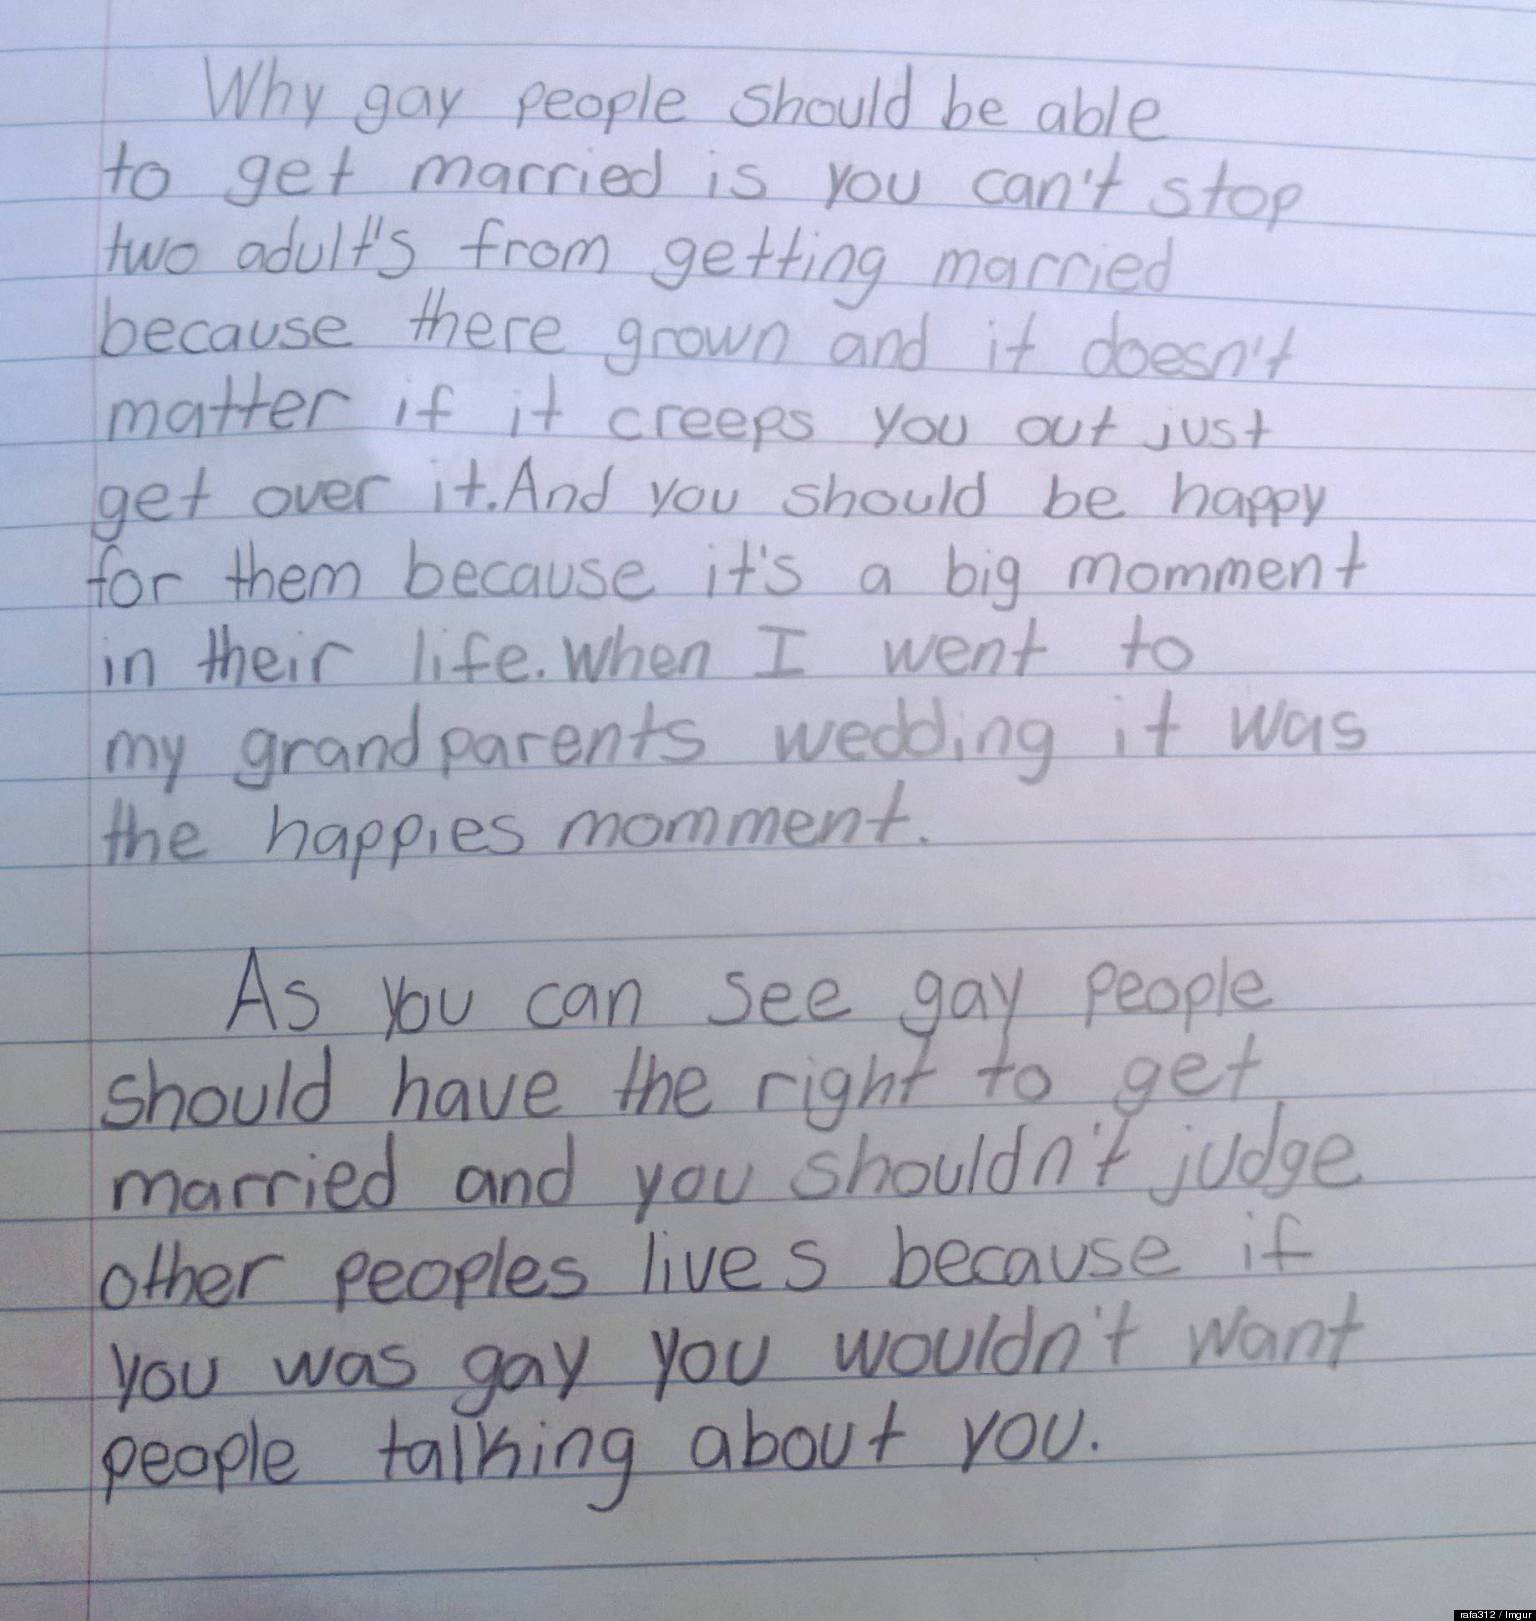 Why gay people should be able
to get married is you can't stop
two adult's from getting married
because there grown and it doesn't
matter if it creeps you out just
get over it. And you should be happy
for them because it's a big momment
in their life. When I went to
my grandparents wedding it was
the happies momment.
As you can see gay people
should have the right to get
married and you shouldn't judge
other peoples lives because if
you was gay you wouldn't want
people talking about you.
rafa312 / Imgur